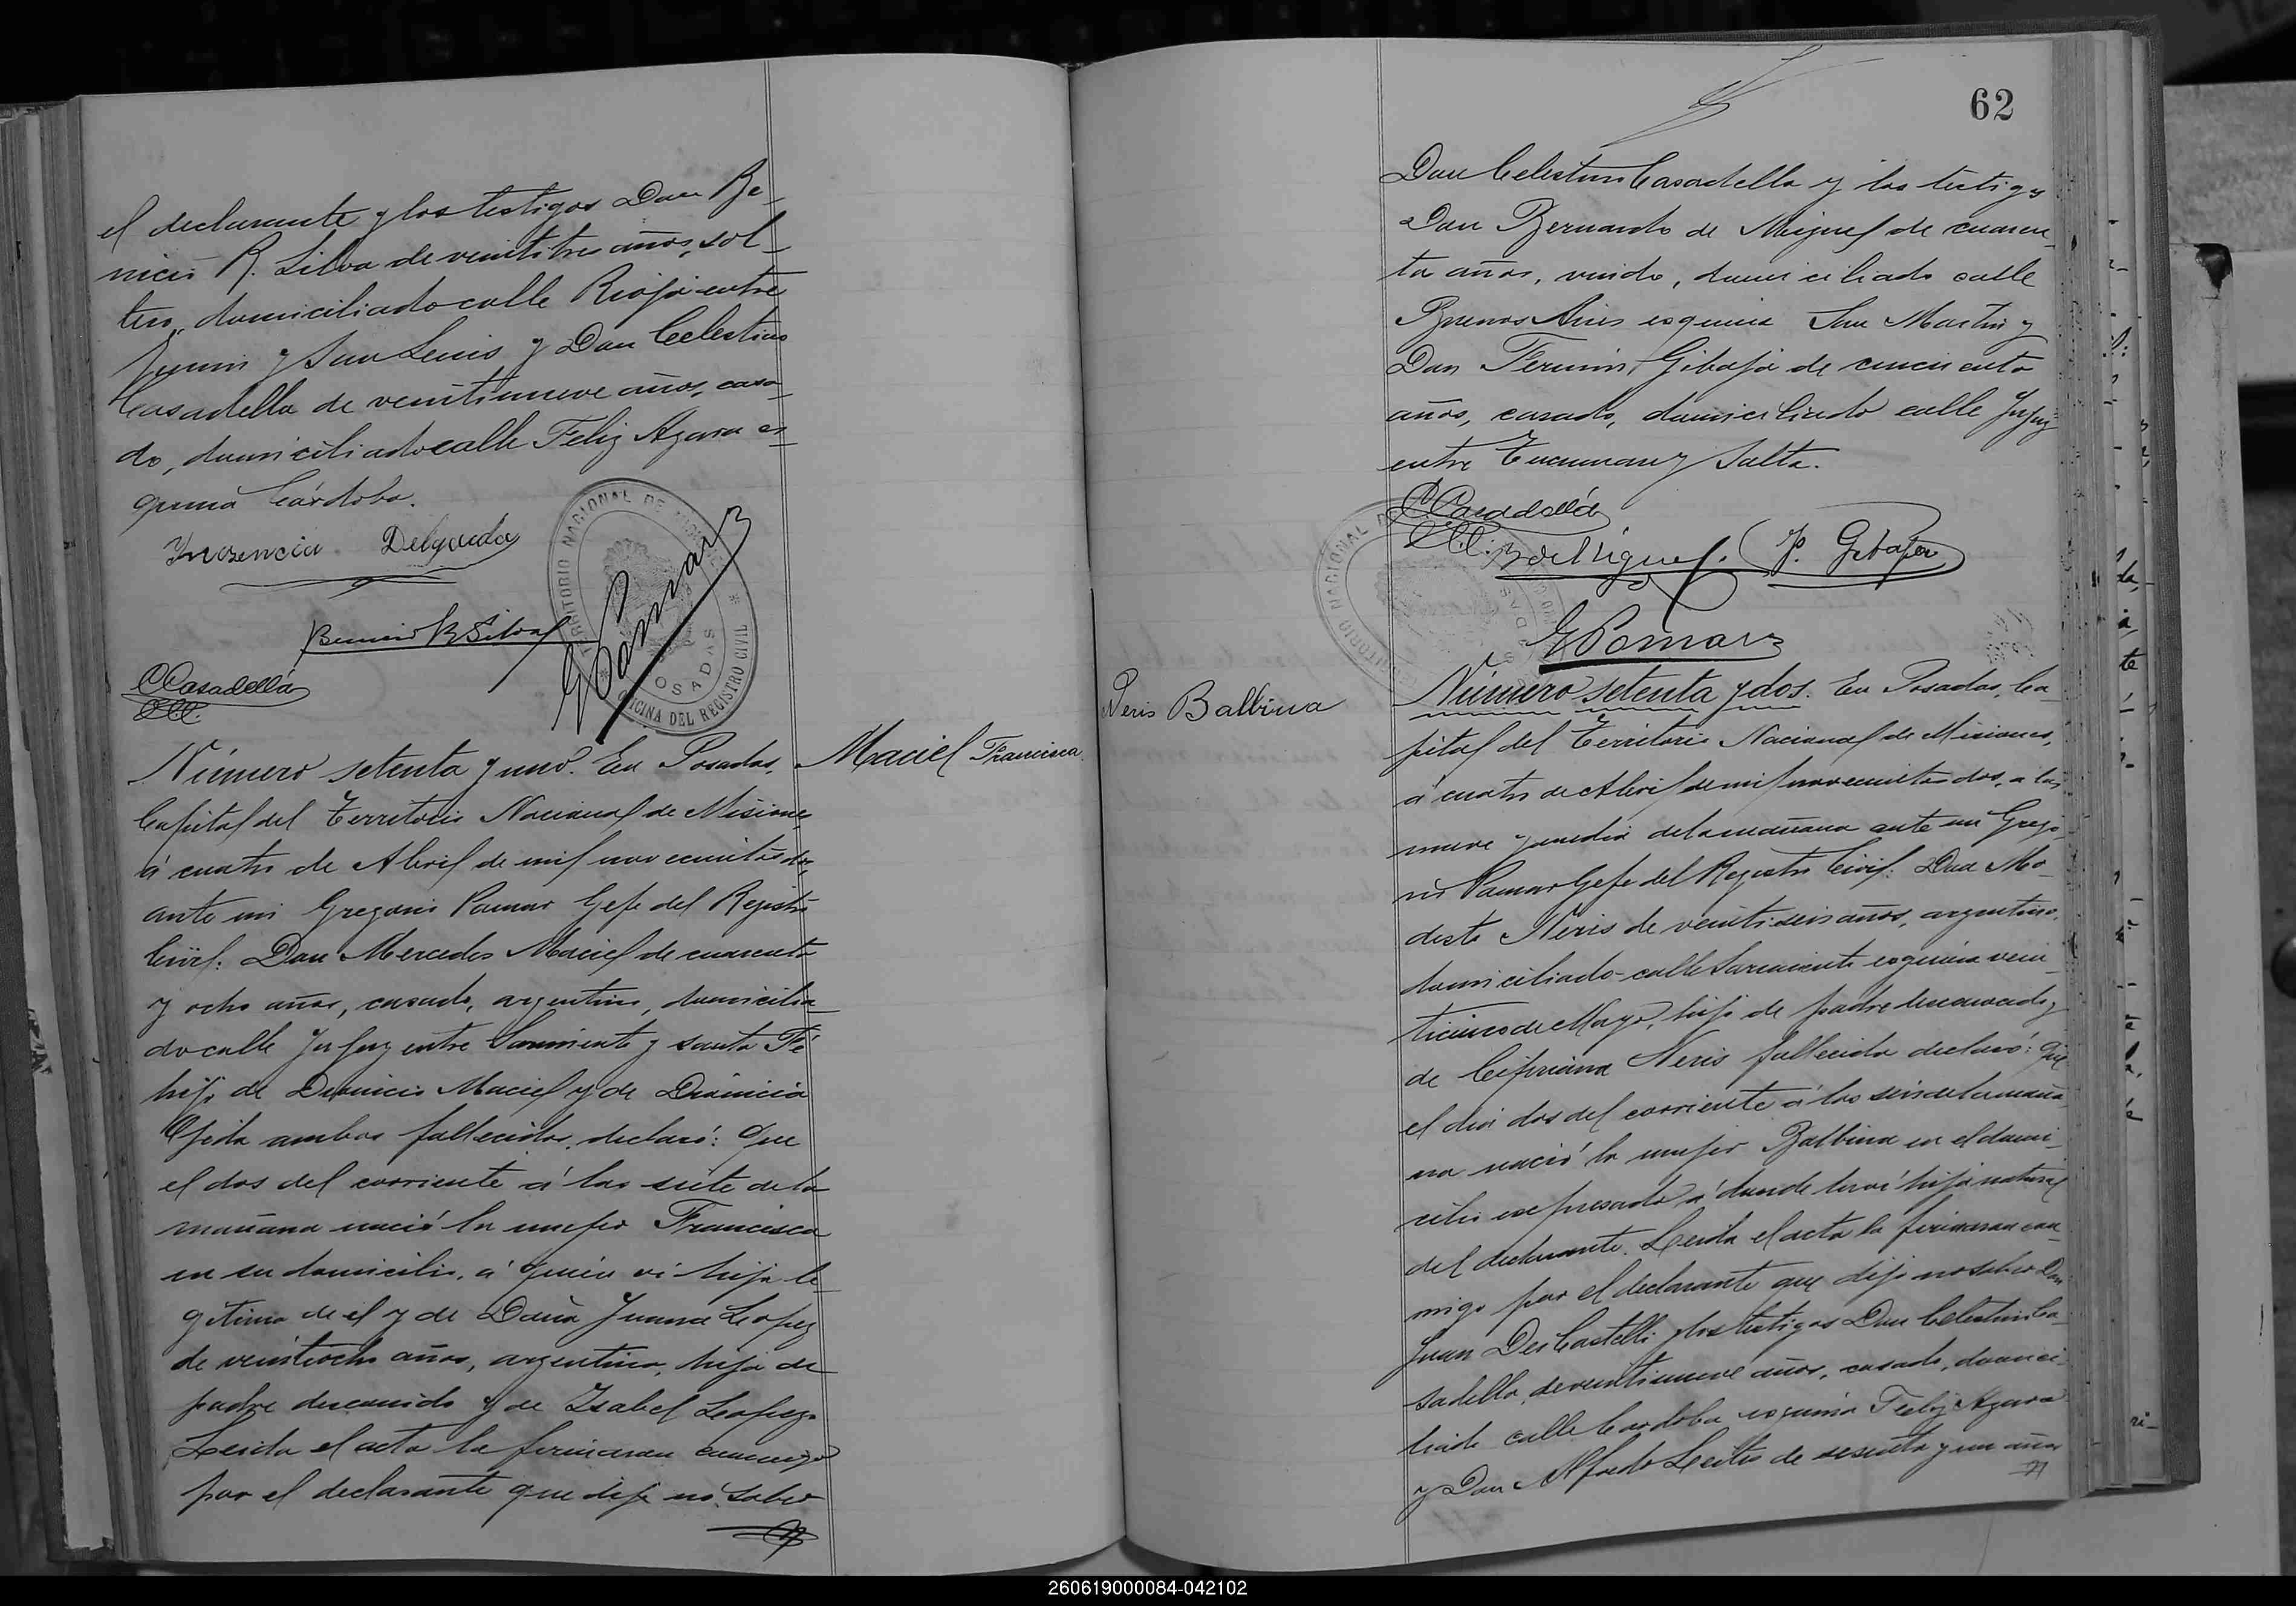 el declarante y los testigos Don Be-
nicio R. Silva de veintitres años, sol-
tero, domiciliado calle Rioja entre
Junin y San Luis y Don Celestino
Casadella de veintinueve años, casa-
do, domiciliado calle Feliz Azara es-
quina Córdoba.
Inosencia Delgado
Benicio R Silva
CCasadellá
GPomar
TERRITORIO NACIONAL DE MISIONES
POSADAS
OFICINA DEL REGISTRO CIVIL
Número setenta y uno. En Posadas,
Maciel Francisca
Capital del Territorio Nacional de Misiones,
á cuatro de Abril de mil novecientos dos,
ante mi Gregorio Pomar Gefe del Registro
Civil: Don Mercedes Maciel de cuarenta
y ocho años, casado, argentino, domicilia-
do calle Jujuy entre Sarmiento y Santa Fé
hijo de Dionicio Maciel y de Dionicia
ambos fallecidos, declaró: Que
el dos del corriente á las siete de la
mañana nació la mujer Francisca
en su domicilio, á quien vi hija le-
gitima de el y de Doña Juana Lopez
de veintiocho años, argentina, hija de
padre desconocido y de Isabel Lopez.
Leida el acta la firmaron conmigo
por el declarante que dijo no saber
62
Don Celestino Casadella y los testigos
Don Bernardo de Miguel de cuaren-
ta años, viudo, domiciliado calle
Buenos Aires esquina San Martin y
Don Fermin Gibaja de cincuenta
años, casado, domiciliado calle Jujuy
entre Tucuman y Salta.
CCasadellá
B de Miguel. F. Gibaja
GPomar
Neris Balbina
Número setenta y dos. En Posadas, Ca-
pital del Territorio Nacional de Misiones,
á cuatro de Abril de mil novecientos dos, a las
nueve y media de la mañana ante mi Grego-
rio Pomar Gefe del Registro Civil: Don Mo-
desto Neris de veintiseis años, argentino,
domiciliado calle Sarmiento esquina vein-
ticinco de Mayo, hijo de padre desconocido y
de Cipriana Neris fallecida declaró: Que
el dia dos del corriente á las seis de la maña-
na nació la mujer Balbina en el domi-
cilio expresado á donde la vi hija natural
del declarante. Leida el acta la firmaron con-
migo por el declarante que dijo no saber Don
Juan Des Castelli y los testigos Don Celestino Ca-
sadella, de veintinueve años, casado, domici-
liado calle Cordoba esquina Feliz Azara
y Don Alfredo Leites de sesenta y un años
260619000084-042102